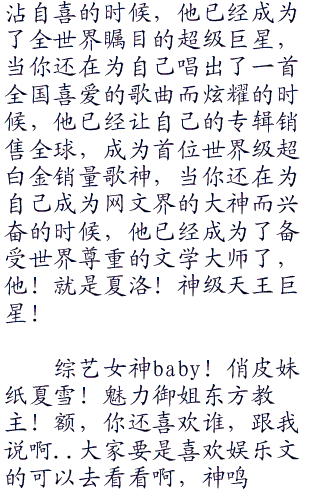 沾自喜的时候，他已经成为
了全世界瞩目的超级巨星，
当你还在为自己唱出了一首
全国喜爱的歌曲而炫耀的时
候，他已经让自己的专辑销
售全球，成为首位世界级超
白金销量歌神，当你还在为
自己成为网文界的大神而兴
奋的时候，他已经成为了备
受世界尊重的文学大师了，
他！就是夏洛！神级天王巨
星！
综艺女神baby！俏皮妹
纸夏雪！魅力御姐东方教
主！额，你还喜欢谁，跟我
说啊..大家要是喜欢娱乐文
的可以去看看啊，神鸣